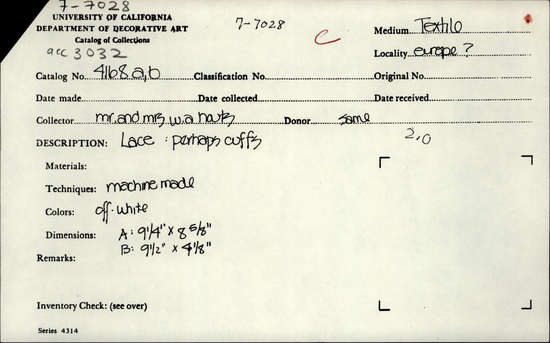 7-7028
UNIVERSITY OF CALIFORNIA 7-7028 C Medium Textile
DEPARTMENT OF DECORATIVE ART
Catalog of Collections
acc 3032 Locality europe?
Catalog No. 4168 a,b Classification No. Original No.
Date made Date collected Date received
Collector mr. and mrs w.a. Donor same
DESCRIPTION: Lace : perhaps cuffs 2,0
Materials:
Techniques: machine made
Colors: off-white
Dimensions: A: 9 1/4" x 8 5/8"
B: 9 1/2" x 4 1/8"
Remarks:
Inventory Check: (see over)
Series 4314